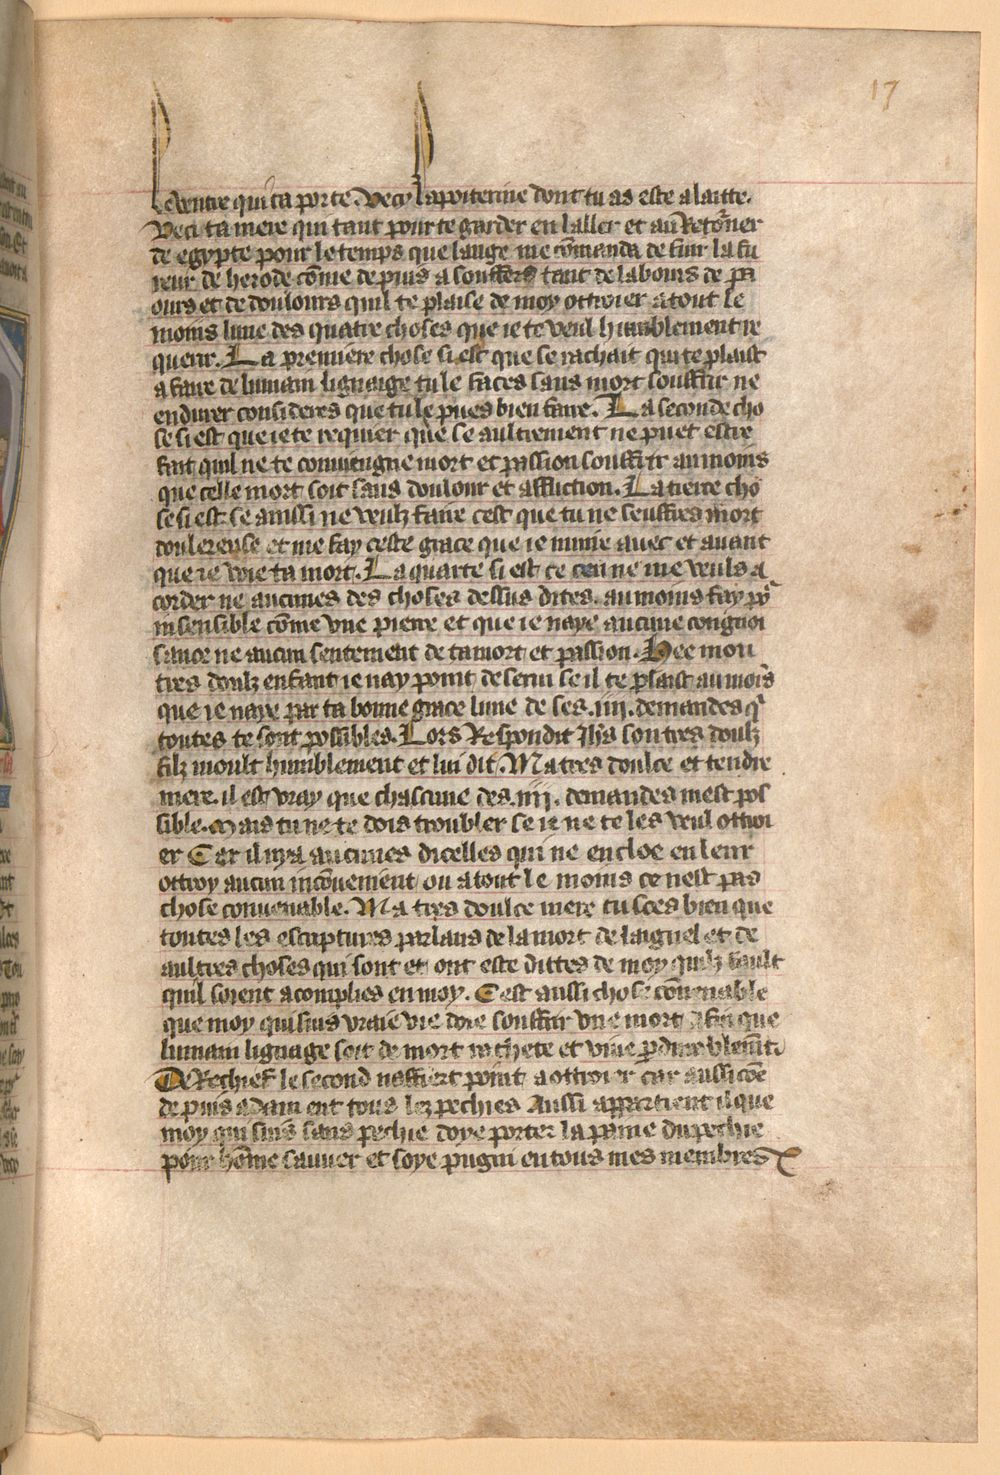 17
Le ventre qui ta porte. Vecy la poiterine dont tu as este alaitte.
Veci ta mere qui tant pour te garder en laller et au Retorner
de egypte pour le temps que lange me comanda de fuir la fu
reur de herode come depuis a souffers tant de labours de pa
ours et de doulours quil te plaise de moy ottroier a tout le
moins lune des quatre choses que ie te veul humblement re
querir. La premiere chose si est que se rachait qui te plaist
a faire de lumain lignaige tu le faces sans mort souffrir ne
endurer consideres que tu le pues bien faire. La seconde cho
se si est que ie te requier que se aultrement ne puet estre
fait quil ne te conviengne mort et passion souffrir au moins
que celle mort soit sans doulour et affliction. La tierce cho
se si est se ainssi ne veulz faire cest que tu ne seuffres mort
doulereuse et me fay ceste grace que ie muire avec et avant
que ie voie ta mort. La quarte si est ce ceu ne me veuls a
corder ne aucunes des choses dessus dites. au moins fay por
insensible come une pierre et que ie naye aucune congnoi
sance ne aucun sentement de ta mort et passion. Hee mon
tres doulz enfant ie nay point deservi se il te plaist au moins
que ie naye par ta bonne grace lune de ses .iiii. demandes q
toutes te sont possibles. Lors Respondit Jhs son tres doulz
filz moult humblement et lui dit. Ma tres doulce et tendre
mere. il est vray que chascune des .iiii. demandes mest pos
sible. Mais tu ne te dois troubler se ie ne te les veul ottroi
er Car il ny a aucunes dicelles qui ne encloe en leur
ottroy aucun inconvenient ou a tout le moins ce nest pas
chose convenable. Ma tres doulce mere tu sces bien que
toutes les escriptures parlans de la mort de laignel et de
aultres choses qui sont et ont este dittes de moy quilz fault
quil soient acomplies en moy. Cest aussi chose convenable
que moy qui suis vraie vie doie souffrir une mort Afin que
lumain lignage soit de mort rachete et vive
De Rechief le second naffiert point a ottroier car aussi come
depuis adam ent tous lez pechies Aussi appartient il que
moy qui suis sans pechie doye porter la paine du pechie
pour home sauver et soye pugni en tous mes membres